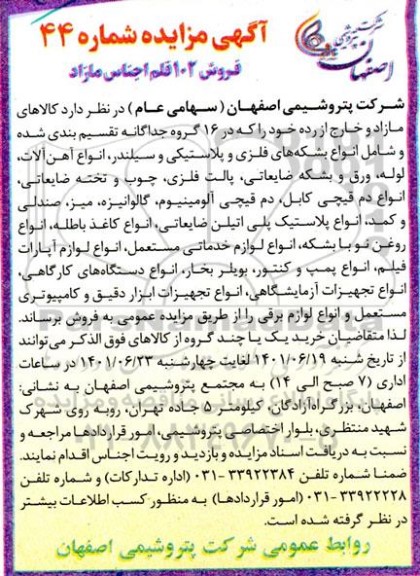 شرکت پتروشیمی اصفهان
آگهی مزایده شماره ۴۴
فروش ۱۰۲ قلم اجناس مازاد
شرکت پتروشیمی اصفهان (سهامی عام) در نظر دارد کالاهای
مازاد و خارج از رده خود را که در ۱۶ گروه جداگانه تقسیم بندی شده
و شامل انواع بشکه‌های فلزی و پلاستیکی و سیلندر، انواع آهن آلات،
لوله، ورق و بشکه ضایعاتی، پالت فلزی، چوب و تخته ضایعاتی،
انواع دم قیچی کابل، دم قیچی آلومینیوم، گالوانیزه، میز، صندلی
و کمد، انواع پلاستیک پلی اتیلن ضایعاتی، انواع کاغذ باطله، انواع
روغن نو با بشکه، انواع لوازم خدماتی مستعمل، انواع لوازم آپارات
فیلم، انواع پمپ و کنتور، بویلر بخار، انواع دستگاه‌های کارگاهی،
انواع تجهیزات آزمایشگاهی، انواع تجهیزات ابزار دقیق و کامپیوتری
مستعمل و انواع لوازم برقی را از طریق مزایده عمومی به فروش برساند.
لذا متقاضیان خرید یک یا چند گروه از کالاهای فوق الذکر می‌توانند
از تاریخ شنبه ۱۴۰۱/۰۶/۱۹ لغایت چهارشنبه ۱۴۰۱/۰۶/۲۳ در ساعات
اداری (۷ صبح الی ۱۴) به مجتمع پتروشیمی اصفهان به نشانی:
اصفهان، بزرگراه آزادگان، کیلومتر ۵ جاده تهران، روبه روی شهرک
شهید منتظری، بلوار اختصاصی پتروشیمی، امور قراردادها مراجعه و
نسبت به دریافت اسناد مزایده و بازدید و رویت اجناس اقدام نمایند.
ضمنا شماره تلفن ۳۳۹۲۲۳۸۴-۰۳۱ (اداره تدارکات) و شماره تلفن
۳۳۹۲۲۲۲۸-۰۳۱ (امور قراردادها) به منظور کسب اطلاعات بیشتر
در نظر گرفته شده است.
روابط عمومی شرکت پتروشیمی اصفهان